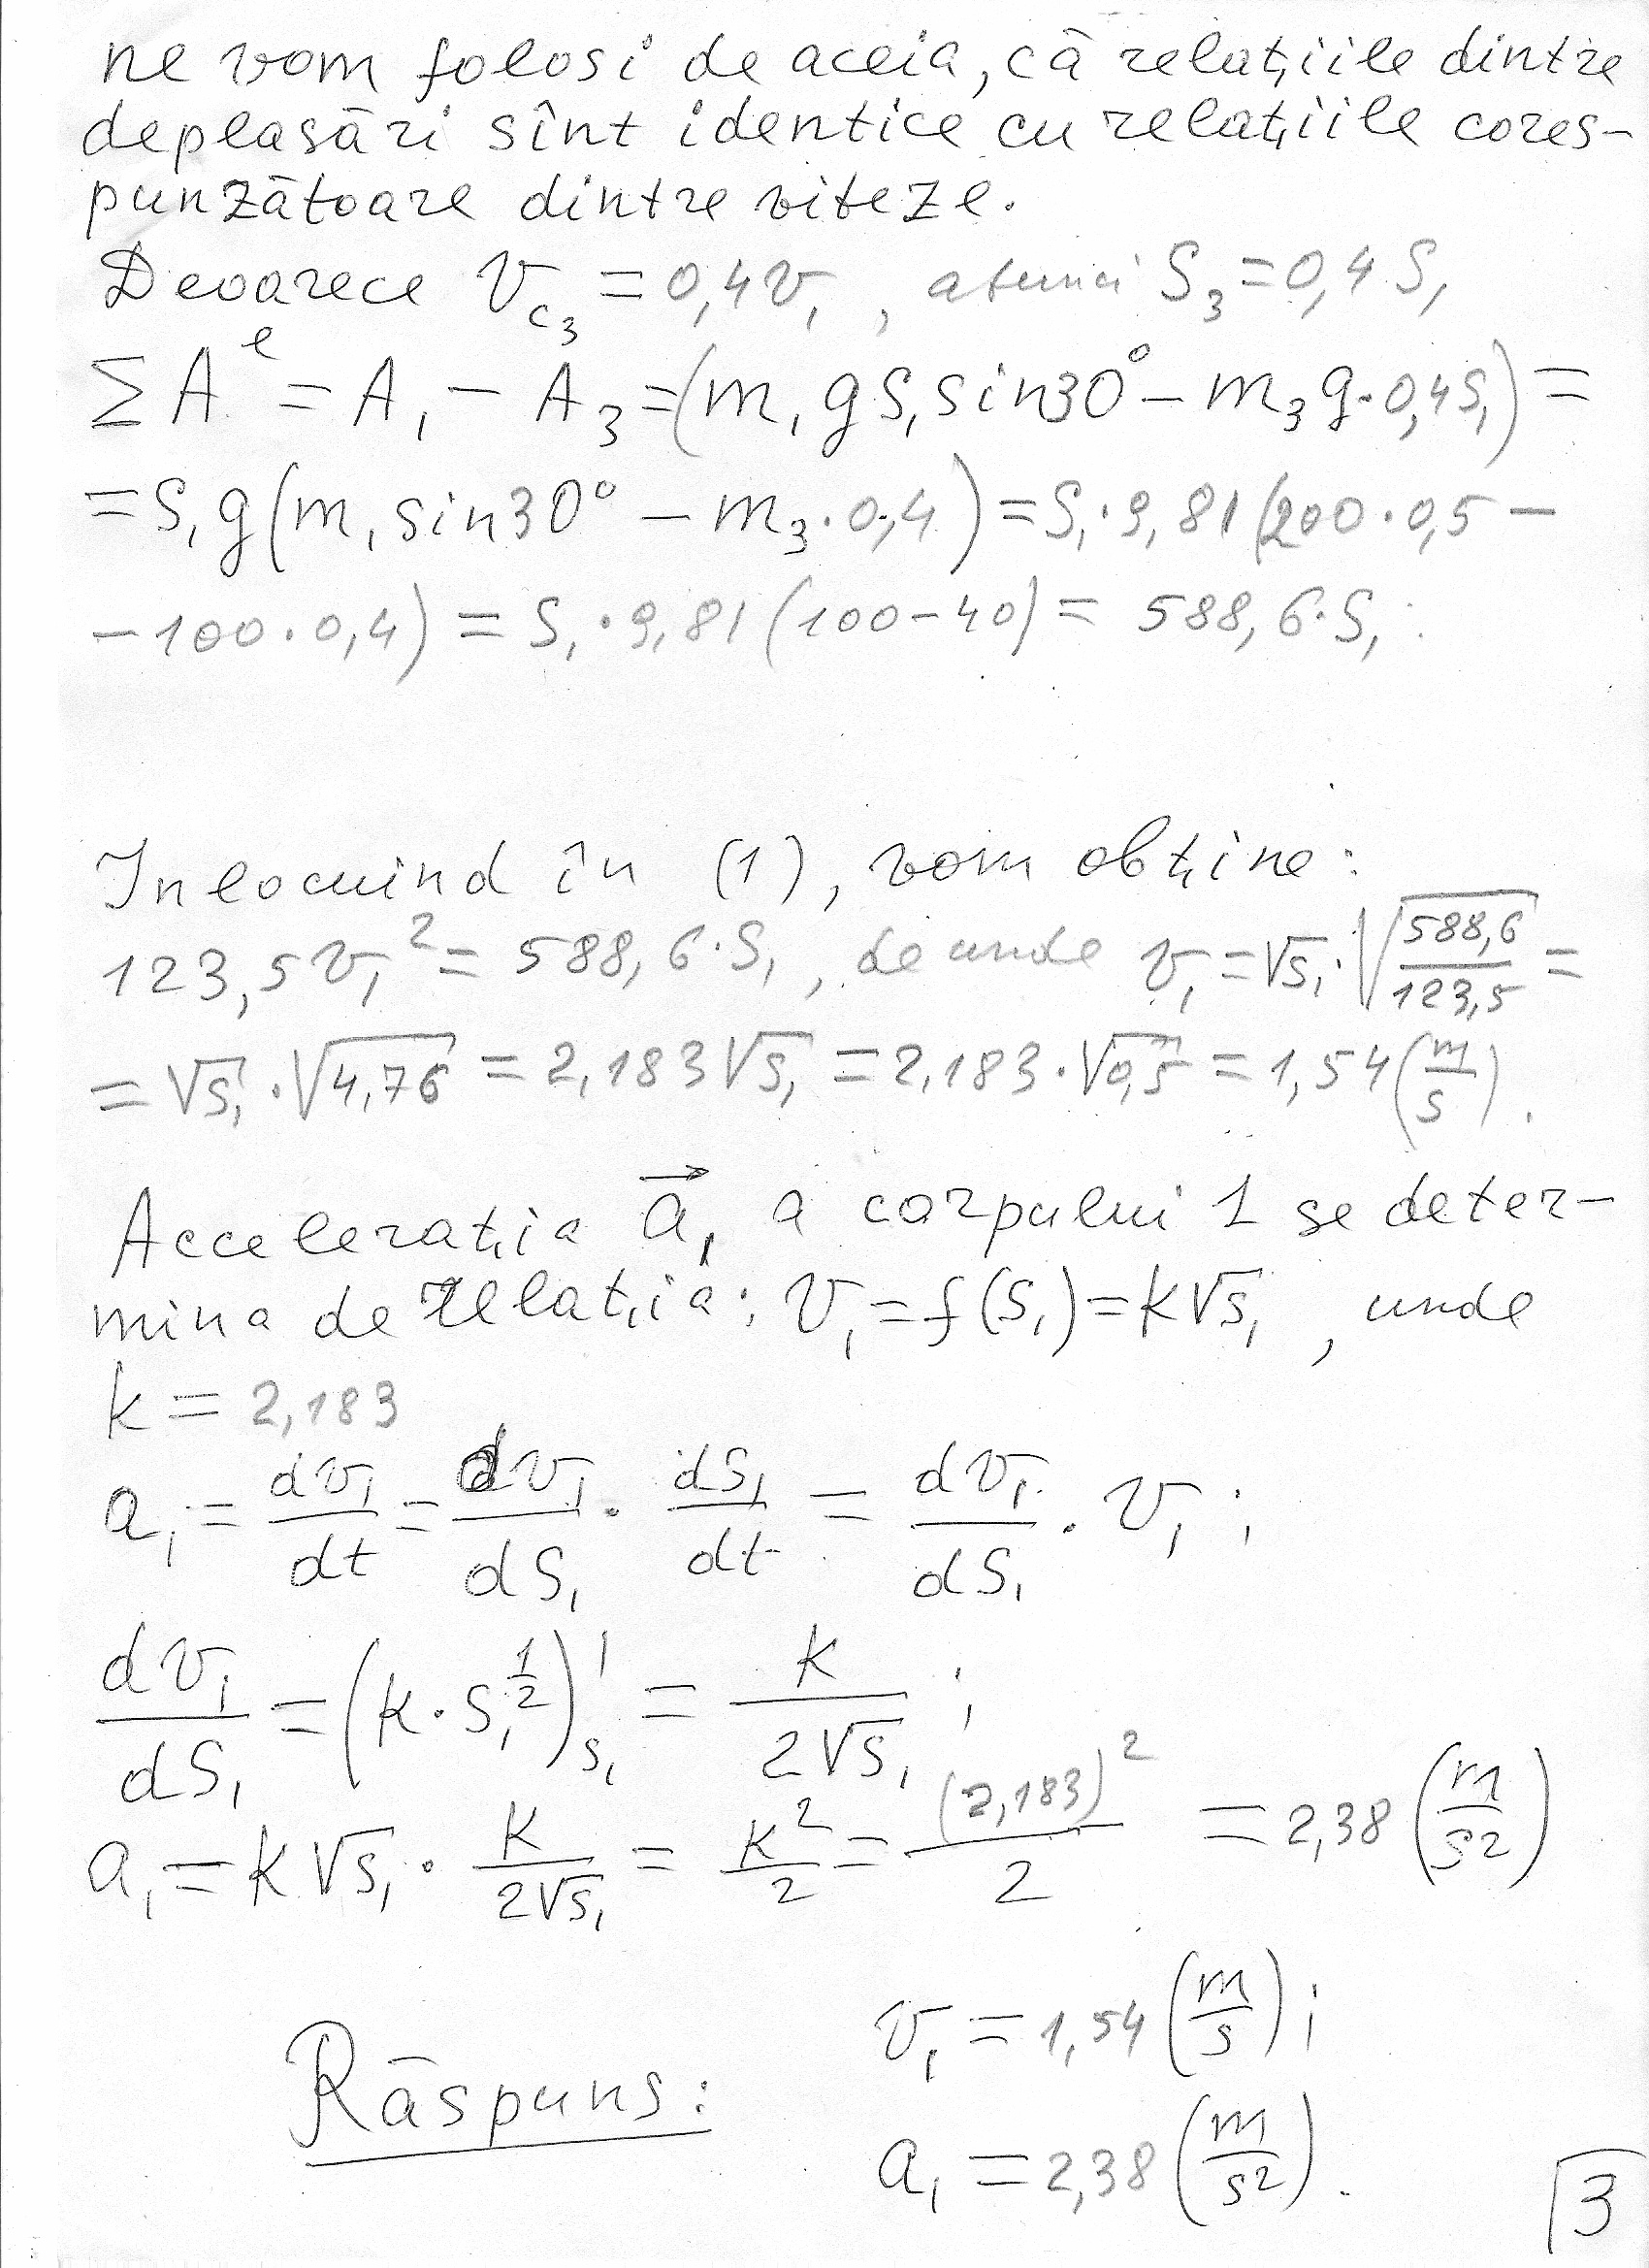 ne vom folosi de aceia, că relațiile dintre
deplasări sînt identice cu relațiile cores-
punzătoare dintre viteze.
Deoarece V_{C_3} = 0,4 V_1, atunci S_3 = 0,4 S_1
ΣA^e = A_1 - A_3 = (m_1 g S_1 sin30° - m_3 g · 0,4 S_1) =
= S_1 g (m_1 sin30° - m_3 · 0,4) = S_1 · 9,81 (200 · 0,5 -
- 100 · 0,4) = S_1 · 9,81 (100 - 40) = 588,6 · S_1.
Inlocuind în (1), vom obține:
123,5 V_1^2 = 588,6 · S_1, de unde V_1 = √S_1 · √(588,6/123,5) =
= √S_1 · √4,76 = 2,183 √S_1 = 2,183 · √0,5 = 1,54 (m/s).
Accelerația a⃗_1 a corpului 1 se deter-
mina de relația: V_1 = f(S_1) = k√S_1, unde
k = 2,183
a_1 = dV_1/dt = dV_1/dS_1 · dS_1/dt = dV_1/dS_1 · V_1;
dV_1/dS_1 = (k · S_1^{1/2})'_{S_1} = k/(2√S_1);
a_1 = k√S_1 · k/(2√S_1) = k^2/2 = (2,183)^2/2 = 2,38 (m/s^2)
Răspuns: V_1 = 1,54 (m/s);
a_1 = 2,38 (m/s^2).
3